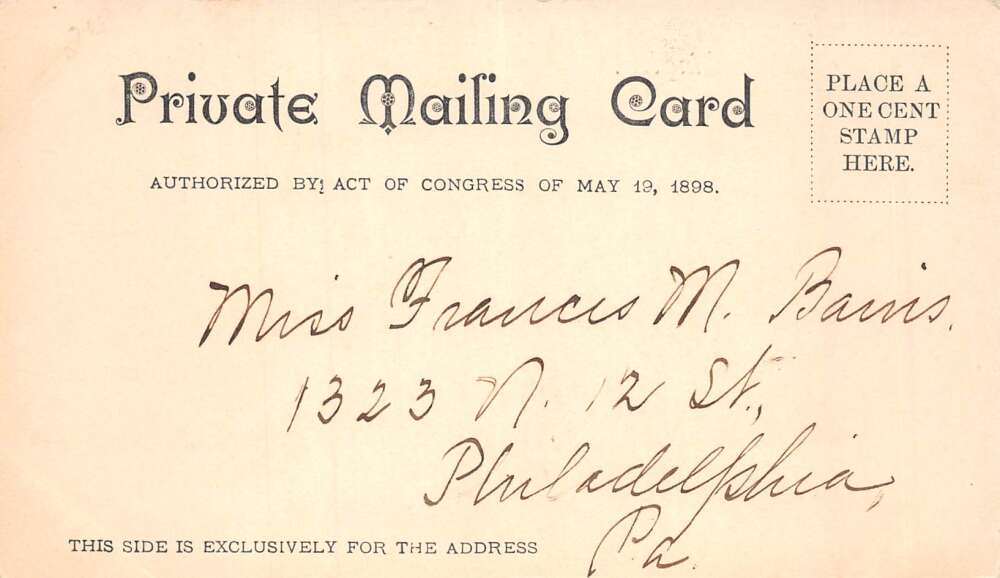 Private Mailing Card
PLACE A
ONE CENT
STAMP
HERE.
AUTHORIZED BY ACT OF CONGRESS OF MAY 19, 1898.
Miss Frances M. Bains.
1323 N. 12 St.,
Philadelphia,
Pa.
THIS SIDE IS EXCLUSIVELY FOR THE ADDRESS